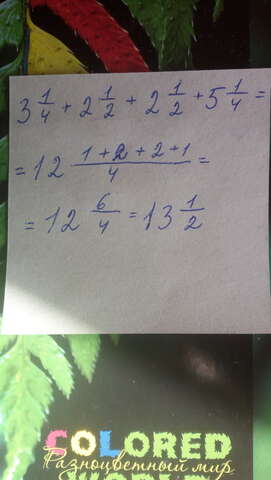 3 1/4 + 2 1/2 + 2 1/2 + 5 1/4 =
= 12 (1+2+2+1)/4 =
= 12 6/4 = 13 1/2
COLORED
Разноцветный мир
WORLD